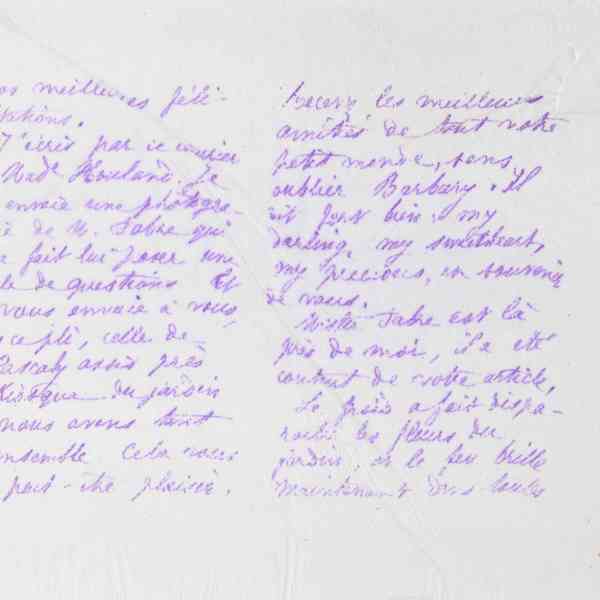 os meilleures féli-
tations.
J'écris par ce courier
Mad. Howland. Je
envoie une photogra-
ie de M. Fabre qui
a fait lui poser une
le de questions. Et
vous envoie à vous,
ce pli, celle de
Pascaly assis près
Kiosque du jardin
nous avons tant
ensemble. Cela vous
peut-être plaisir.
Recevez les meilleures
amitiés de tout notre
petit monde, sans
oublier Barbary. Il
dit fort bien: my
darling, my sweetheart,
my precious, en souvenir
de vous.
Fabre est là
près de moi, il a été
content de votre article.
Le froid a fait dispa-
raître les fleurs du
jardin, et le feu brille
maintenant dans toutes